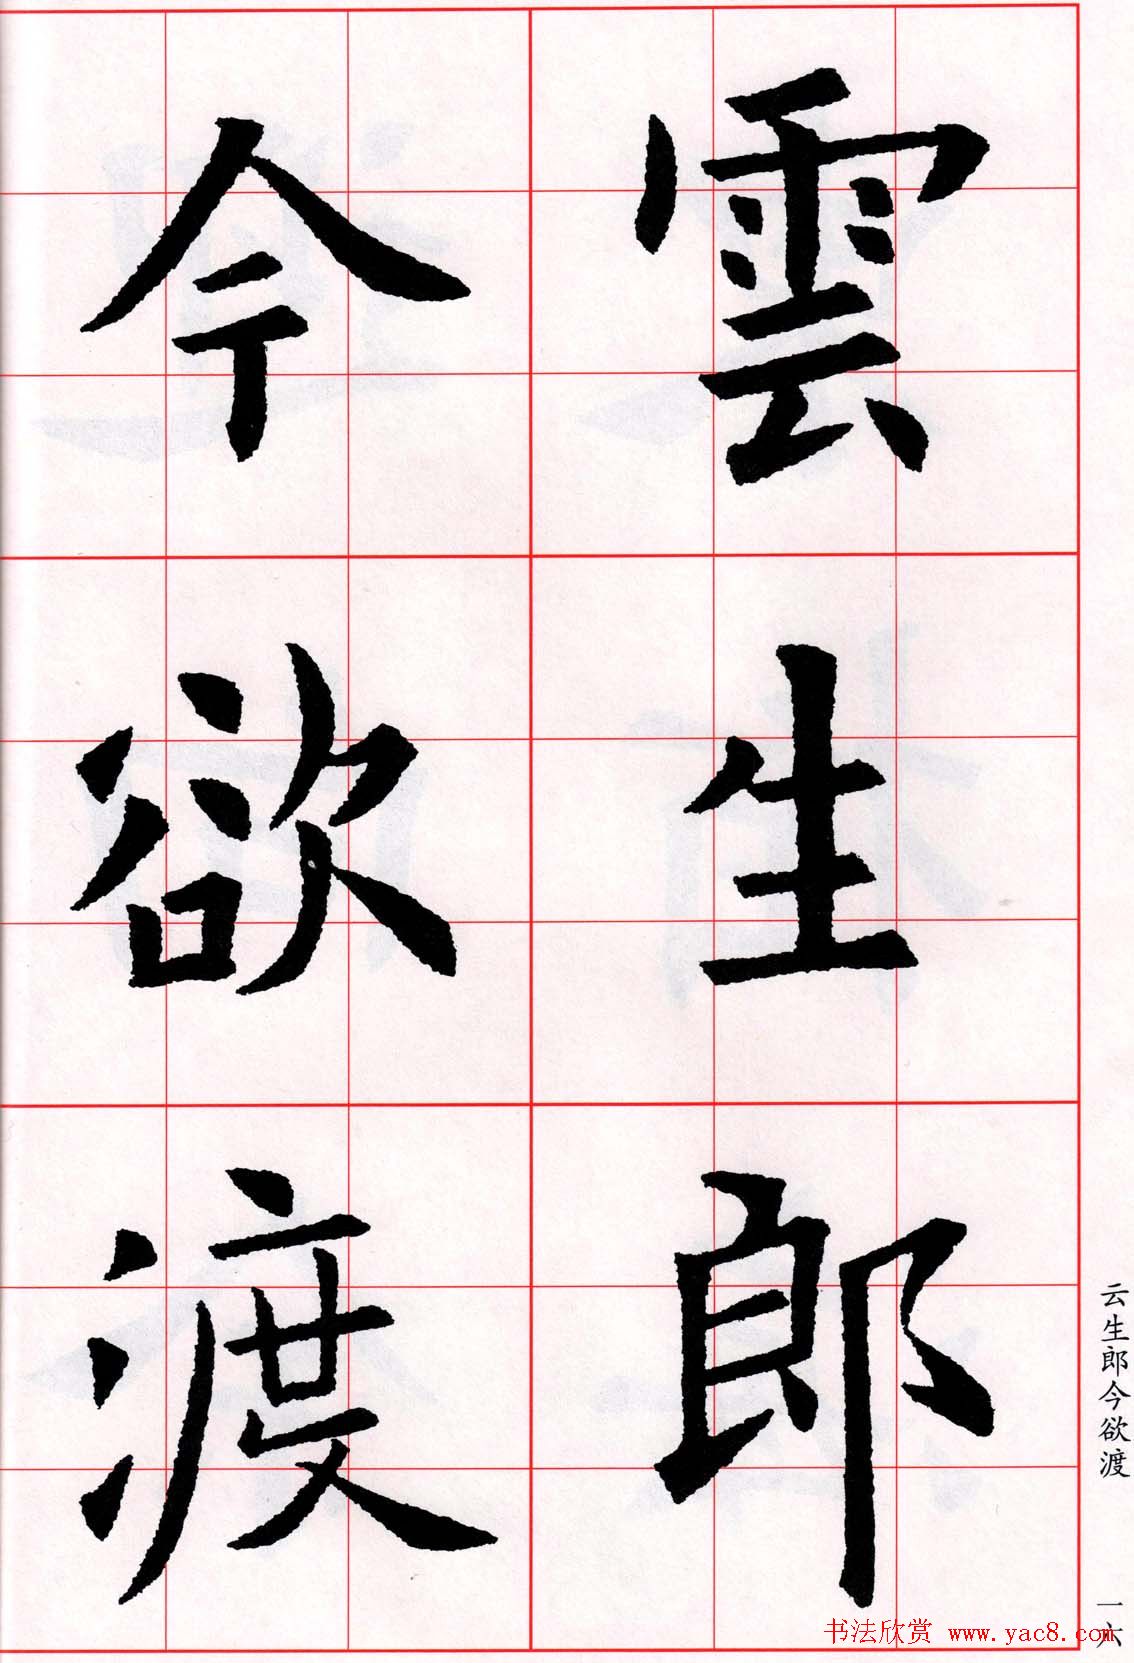 雲生郎
今欲渡
云生郎今欲渡
一六
书法欣赏 www.yac8.com